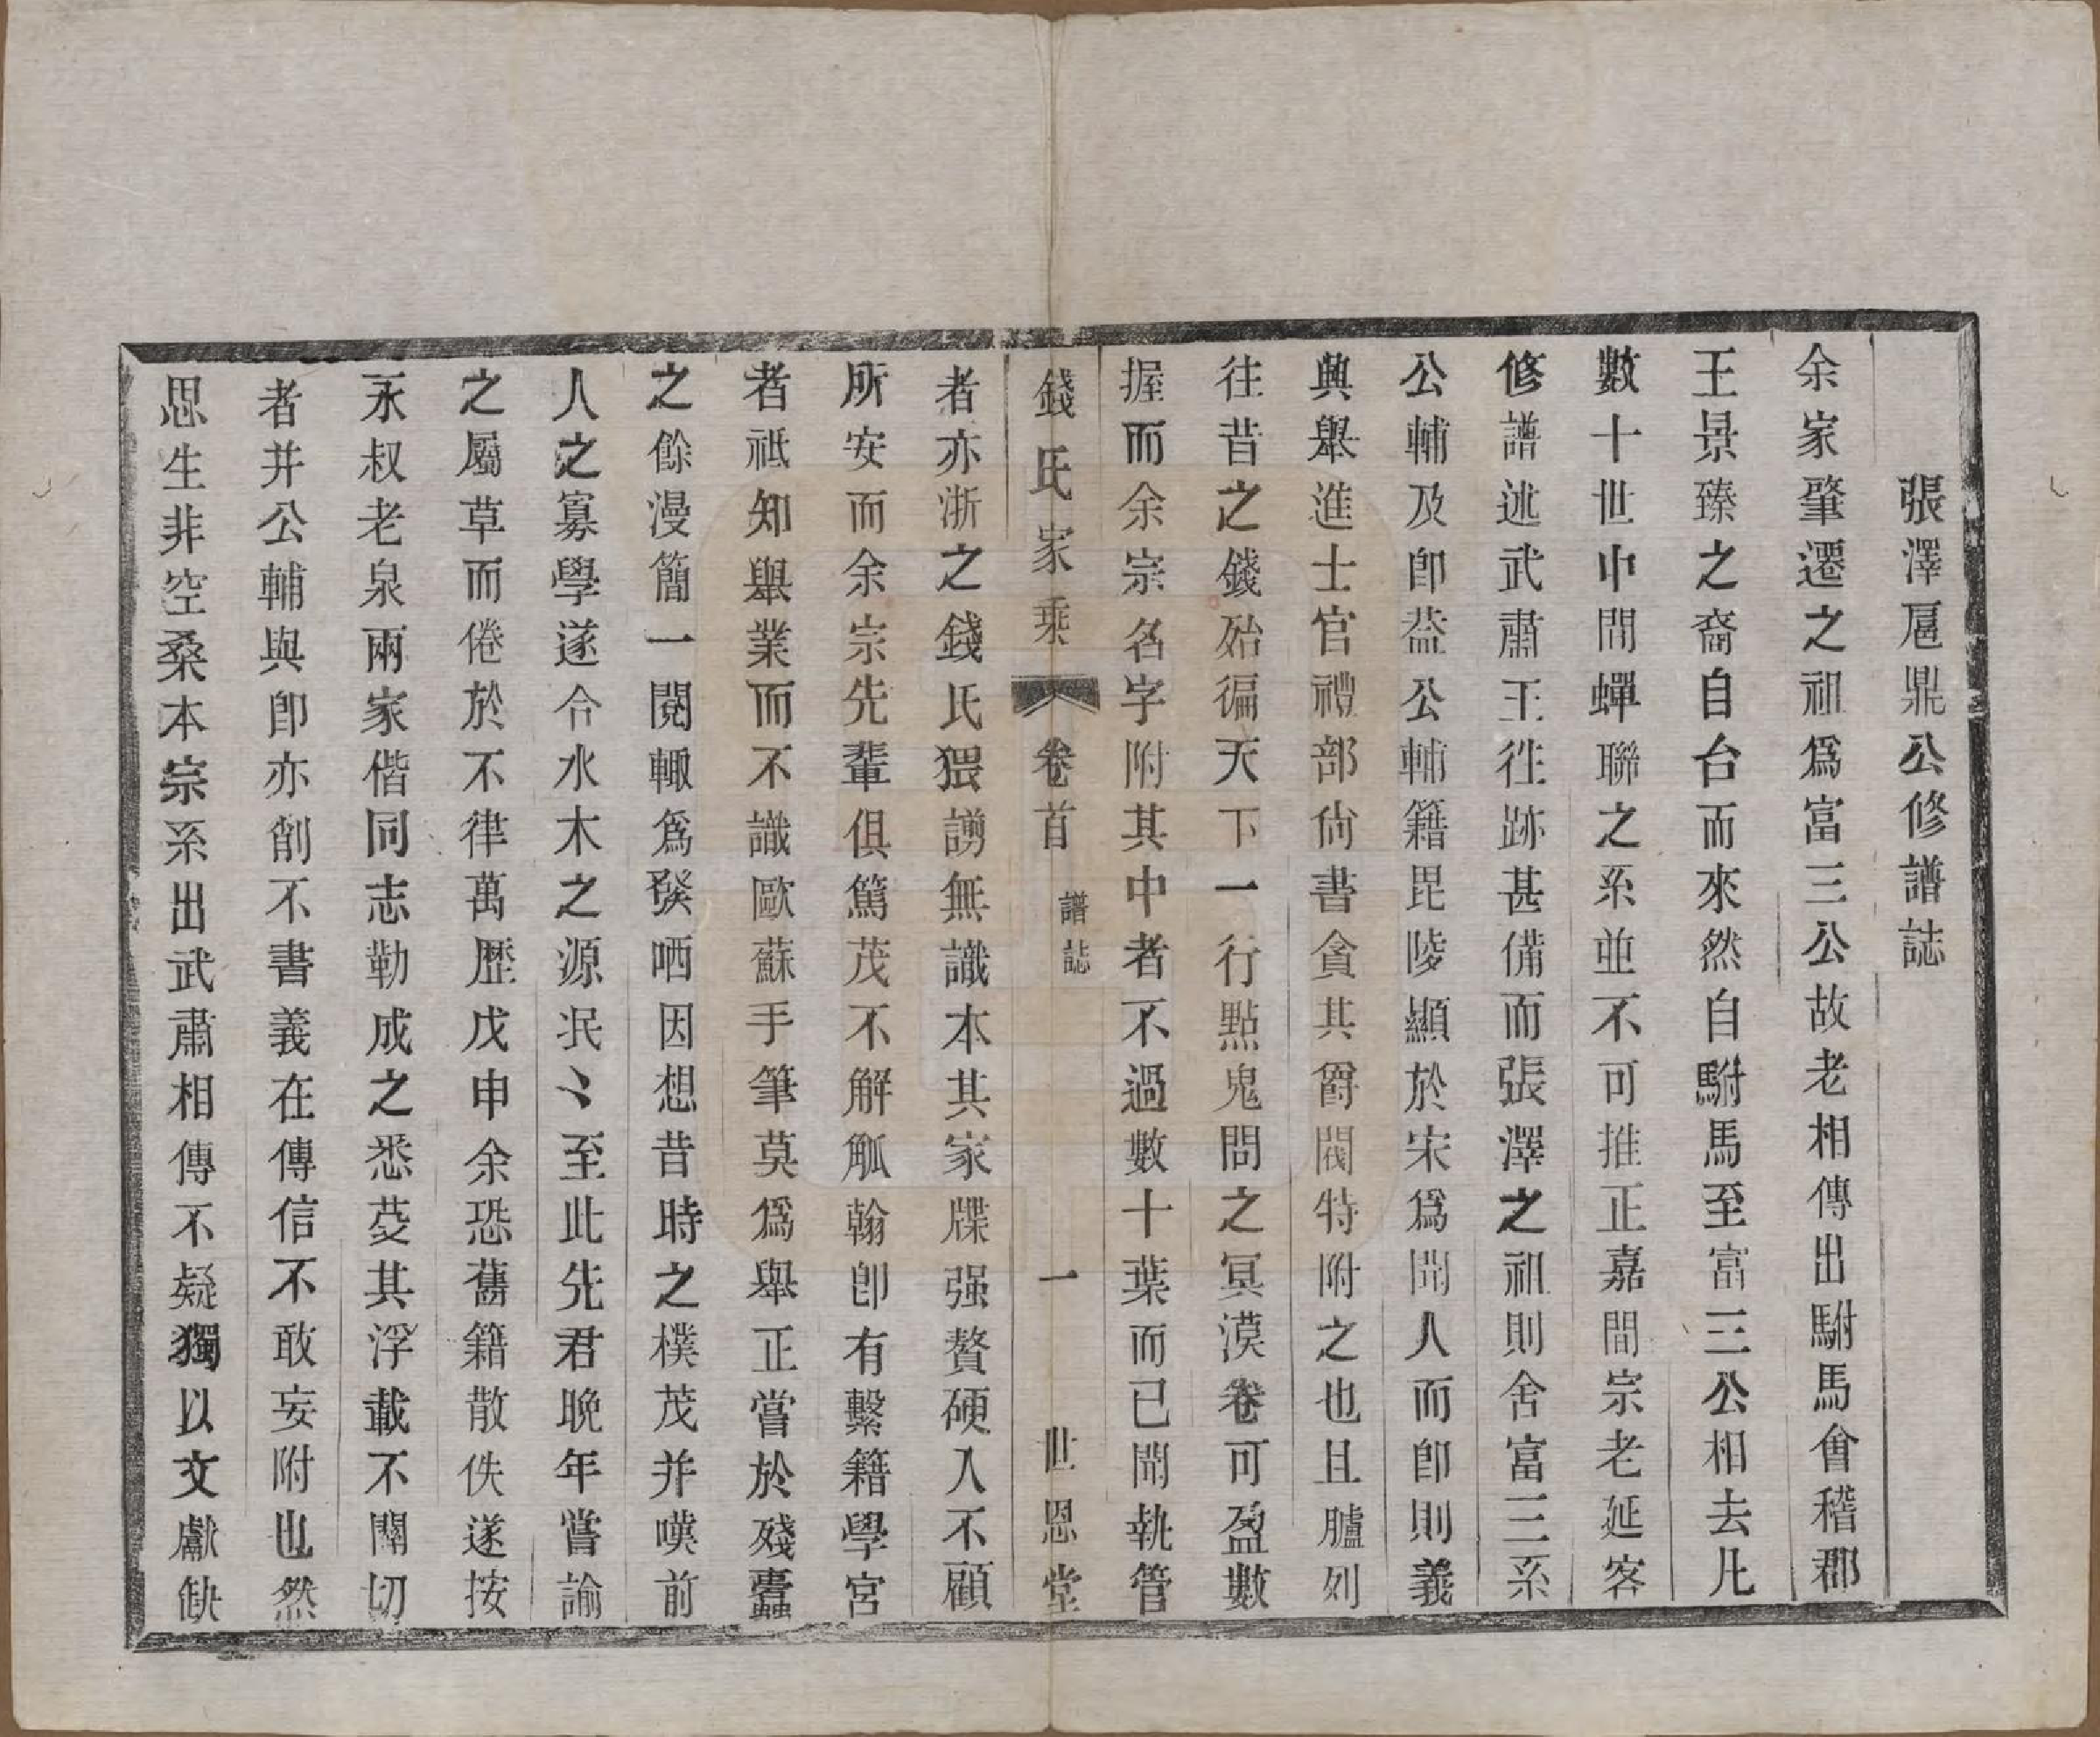 張澤扈鼎公修譜誌
余家肇遷之祖爲富三公故老相傳出駙馬會稽郡
王景臻之裔自台而來然自駙馬至富三公相去凡
數十世中間蟬聯之系並不可推正嘉間宗老延客
修譜述武肅王徃跡甚備而張澤之祖則舍富三系
公輔及卽葢公輔籍毘陵顯於宋爲聞人而卽則義
興舉進士官禮部尙書貪其爵閥特附之也且臚列
往昔之錢殆徧天下一行點鬼問之冥漠卷可盈數
握而余宗名字附其中者不過數十葉而已聞執管
錢氏家乘 卷首 譜誌 一 世恩堂
者亦浙之錢氏猥謭無識本其家牒强贅硬入不顧
所安而余宗先輩俱篤茂不解觚翰卽有繫籍學宮
者祇知舉業而不識歐蘇手筆莫爲舉正嘗於殘蠹
之餘漫簡一閱輙爲發哂因想昔時之樸茂并嘆前
人之寡學遂令水木之源泯〻至此先君晚年嘗諭
之屬草而倦於不律萬歷戊申余恐舊籍散佚遂按
永叔老泉兩家偕同志勒成之悉芟其浮載不關切
者并公輔與卽亦創不書義在傳信不敢妄附也然
思生非空桑本宗系出武肅相傳不疑獨以文獻缺